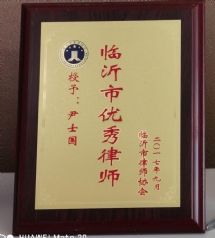 授予：尹士国
临沂市优秀律师
临沂市律师协会
二〇一七年九月
HUAWEI Mate 20